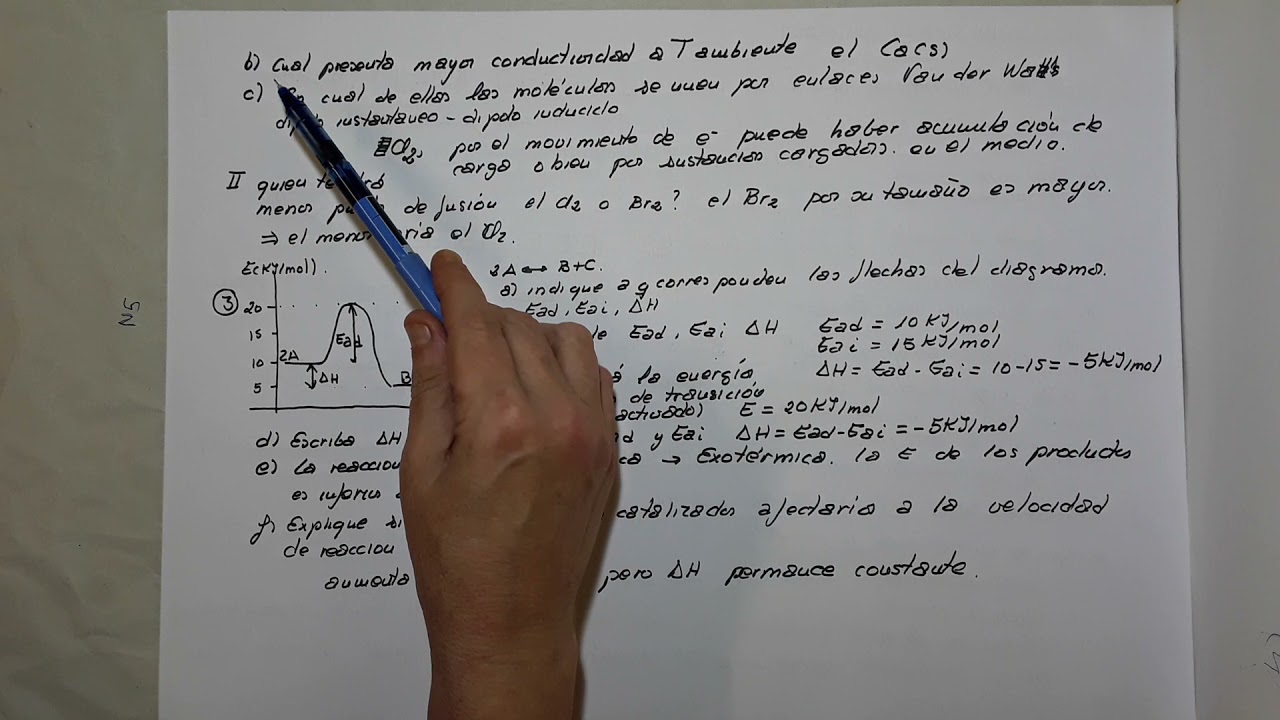 b) cual presenta mayor conductividad a T ambiente el Ca(s)
c) cual de ellas las moléculas se unen por enlaces Van der Waals
instantáneo - dipolo inducido
Cl2, por el movimiento de e- puede haber acumulación de
carga o bien por sustancias cargadas en el medio.
II quien
menos de fusión el Cl2 o Br2? el Br2 por su tamaño es mayor.
⇒ el el Cl2.
E(KJ/mol).
2A ↔ B+C.
a) indique a q corresponden las flechas del diagrama.
Ead, Eai, ΔH
3
20
15
10
5
2A
Ead
ΔH
B
Ead, Eai ΔH
Ead = 10 KJ/mol
Eai = 15 KJ/mol
ΔH = Ead - Eai = 10-15 = -5KJ/mol
la energía
de transición
activado) E = 20KJ/mol
d) Escriba ΔH y Eai ΔH = Ead-Eai = -5KJ/mol
e) la reaccion → Exotérmica. la E de los productos
es
f) Explique catalizados afectaria a la velocidad
de reaccion
aumenta pero ΔH permance constante.
N5